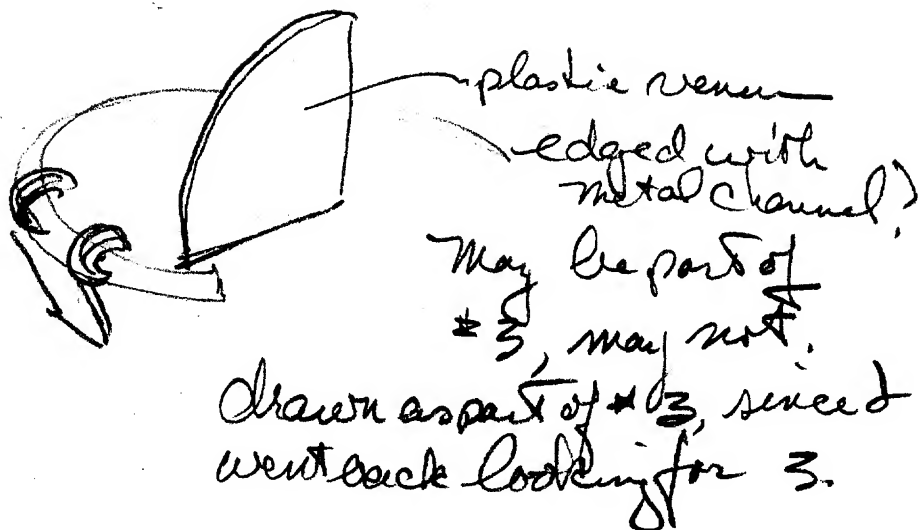 plastic
edged with
metal channel?
May be part of
#3, may not.
drawn as part of #3, since I
went back looking for 3.